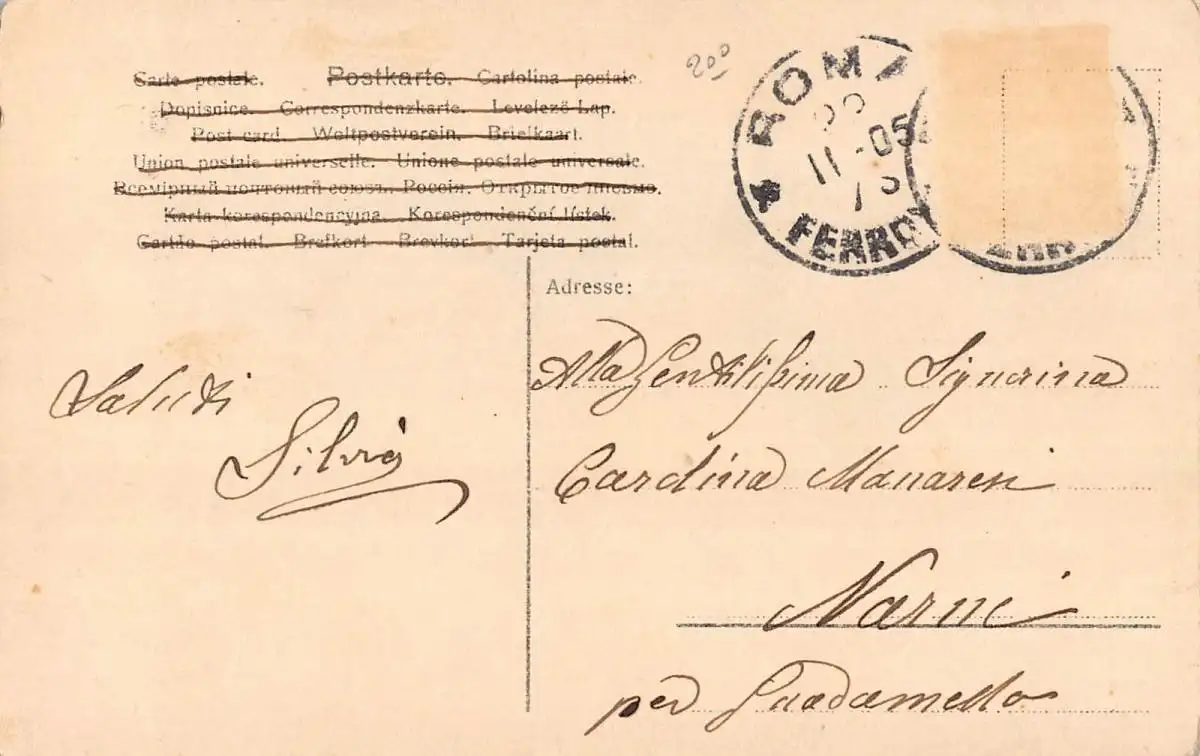 Carte postale. Postkarte. Cartolina postale.
Dopisnice. Correspondenzkarte. Levelező-Lap.
Post card. Weltpostverein. Briefkaart.
Union postale universelle. Unione postale universale.
Всемірный почтовый союзъ. Россія. Открытое письмо.
Karta korespondencyjna. Korespondenční lístek.
Cartão postal. Brefkort. Brevkort. Tarjeta postal.
200
ROMA
11 - 05
FERROV
Adresse:
Saluti
Silvio
Alla Gentilissima Signorina
Cardina Manaresi
Narni
per Guadamello